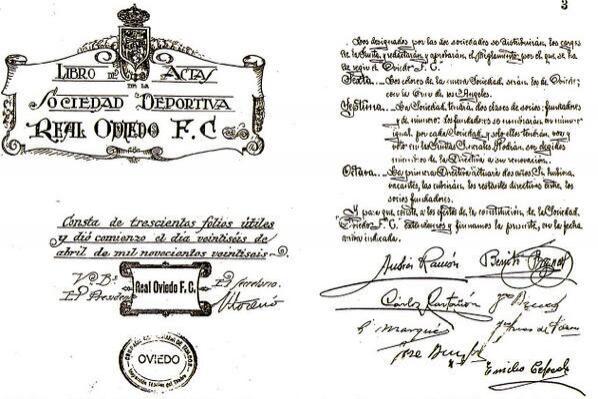 LIBRO DE ACTAS
DE LA
SOCIEDAD DEPORTIVA
REAL OVIEDO F.C.
Consta de trescientos folios útiles
y dió comienzo el día veintiséis de
abril de mil novecientos veintiseis
V.º B.º
El Presidente
Real Oviedo F.C.
El Secretario
OVIEDO
3
Los designados por las dos sociedades se distribuirán, los cargos
de la Junta, redactarán y aprobarán, el Reglamento por el que se ha
de regir el Oviedo F. C.
Sexta.- Los colores de la nueva Sociedad, serán los de Oviedo;
con la Cruz de los Angeles.
Séptima.- La Sociedad tendrá dos clases de socios: fundadores
y de número. Los fundadores se nombrarán en número
igual, por cada Sociedad y solo ellos tendrán, voz y
voto en las Juntas Generales. Podrán ser elegidos
miembros de la Directiva a su renovación.
Octava.- La primera Directiva actuará dos años. Si hubiera
vacantes, las cubrirán los restantes directivos entre los
socios fundadores.
Y para que conste a los efectos de la constitución de la Sociedad
"Oviedo F. C." extendemos y firmamos la presente, en la fecha
arriba indicada.